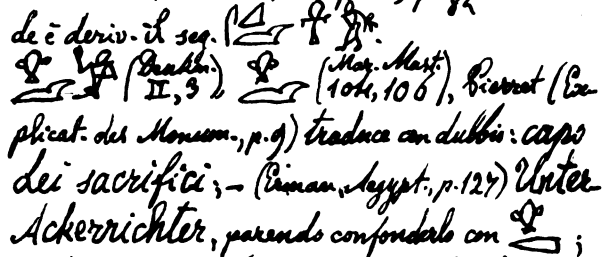 de è deriv. il seg.
(Denkm. II, 3) (Mar. Mast. 104, 106), Pierret (Ex-
plicat. des Monum., p. 9) traduce con dubbio: capo
dei sacrifici; – (Erman, Aegypt., p. 127) Unter
Ackerrichter, parendo confonderlo con ;